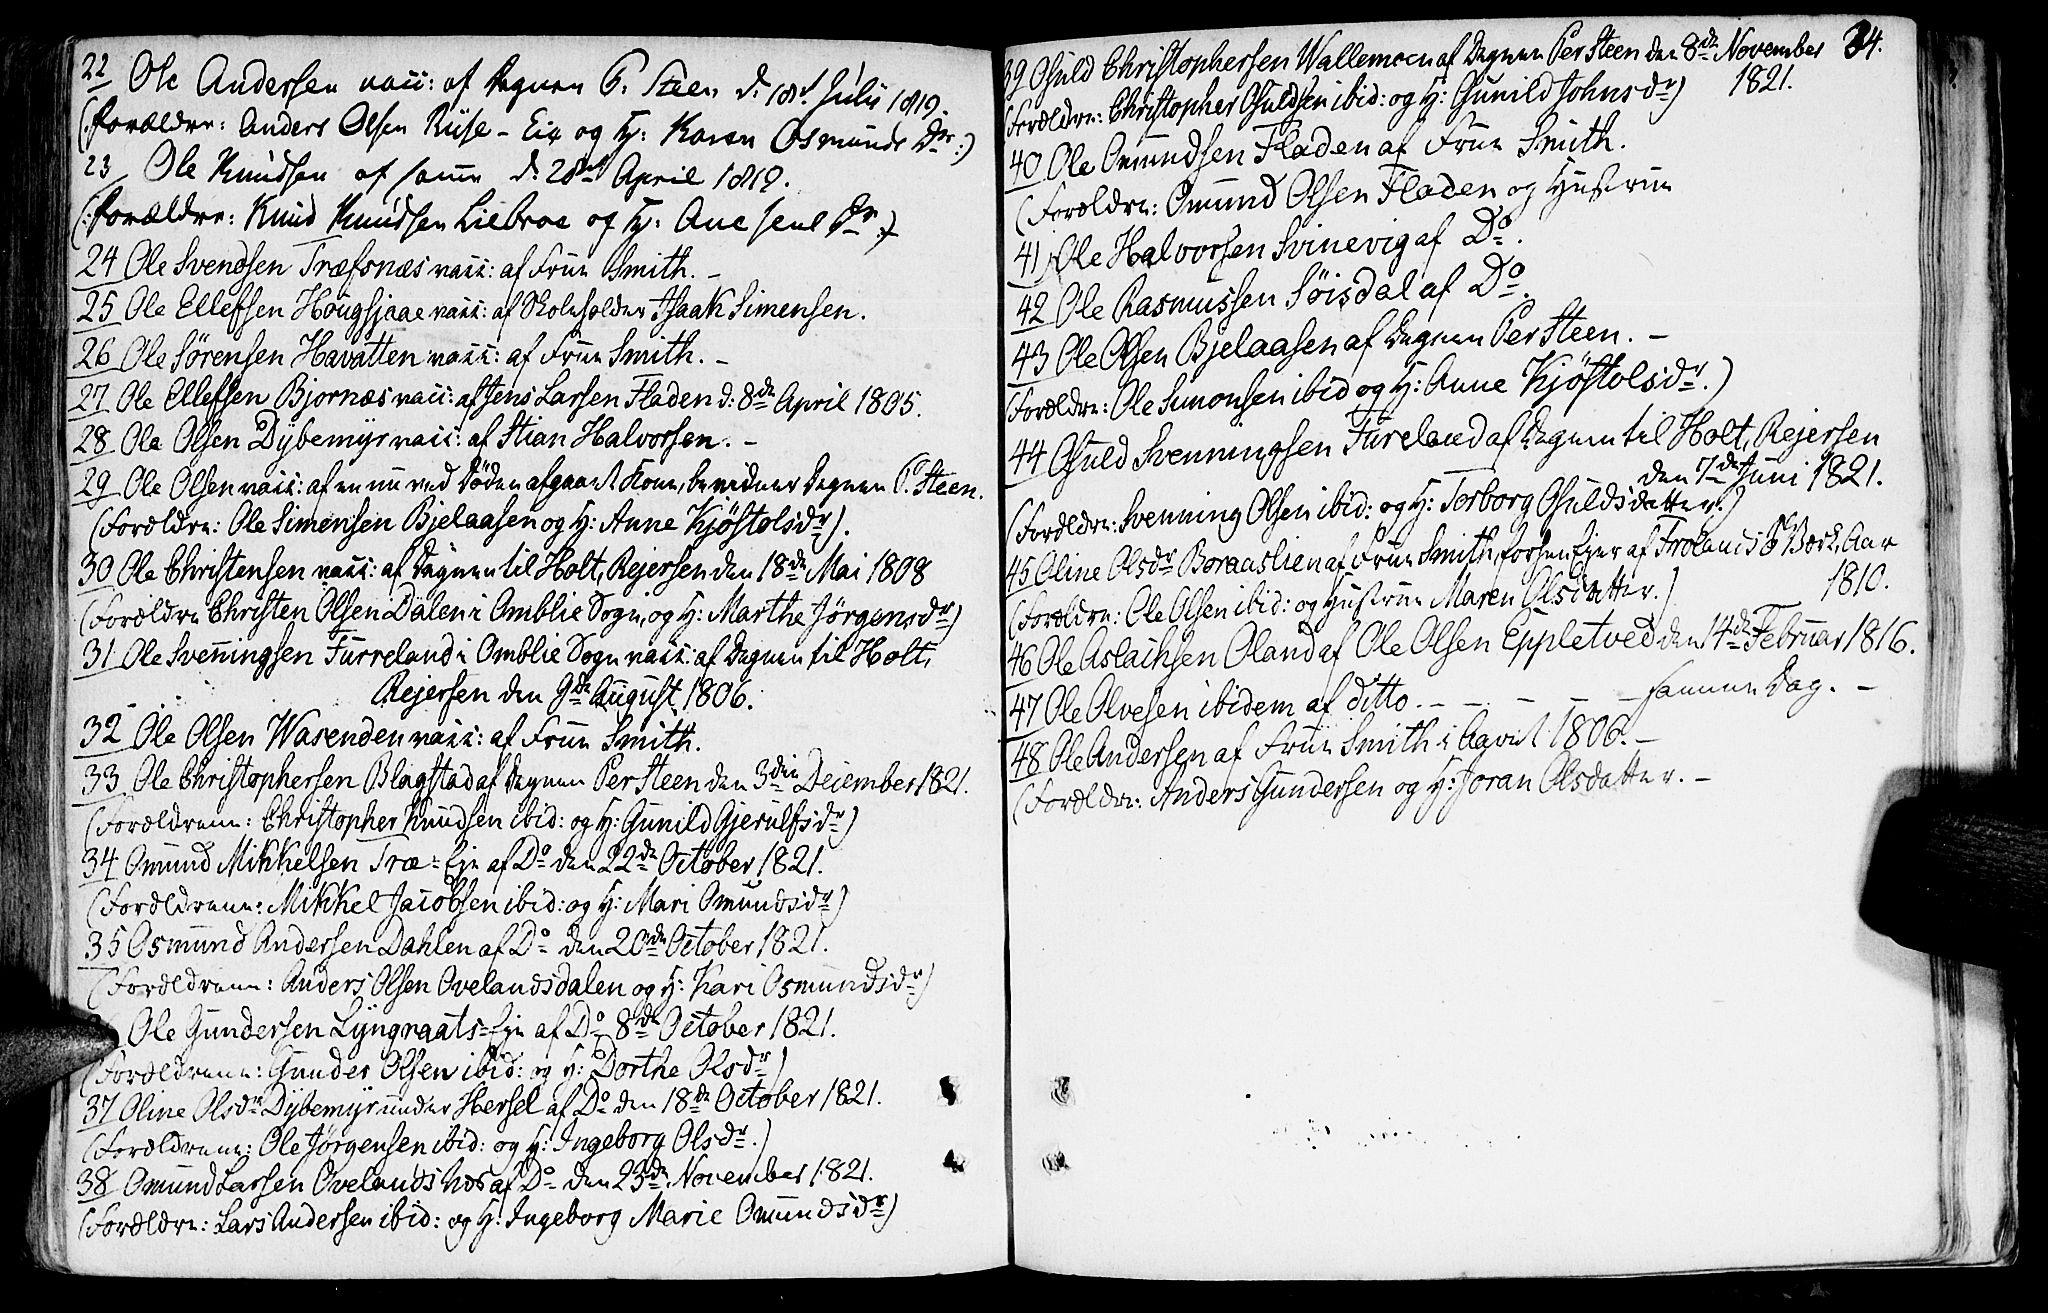 22 Ole Andersen vacc: af Degnen P. Steen d: 18de Julii 1819.
(: Forældre: Anders Olsen Riise-Eie og H: Karen Osmunds Dr :)
23 Ole Knudsen af samme d: 28de April 1819.
(: Forældre: Knud Knudsen Liebroe og H: Ane
24 Ole Svendsen Træfsnæs vacc: af Frue Smith. –
25 Ole Ellefsen Hougsjaae vacc: af Skoleholder Isaak Simensen.
26 Ole Sörensen Havatten vacc: af Frue Smith. –
27 Ole Ellefsen Bjornæs vacc: af Jens Larsen Fladen d: 8de April 1805.
28 Ole Olsen Dybemyr vacc: af Stian Halvorsen. –
29 Ole Olsen vacc: af en nu ved Döden afgaaet Kone, bevidner Degnen P. Steen.
(Forældre: Ole Simensen Bjelaasen og H: Anne Kjöstolsdr).
30 Ole Christensen vacc: af Degnen til Holt, Rejersen den 18de Mai 1808
(Forældre Christen Olsen Dalen i Omblie Sogn, og H: Marthe Jörgensdr)
31 Ole Svenningsen Furreland i Omblie Sogn vacc: af Degnen til Holt,
Rejersen den 9de August 1806.
32 Ole Olsen Wasenden vacc: af Frue Smith.
33 Ole Christophersen Blagstad af Degnen Per Steen den 3die December 1821.
(Forældrene: Christopher Knudsen ibid: og H: Gunild Gjerulfsdr)
34 Omund Mikkelsen Træ-Eje af Do den 22de October 1821.
(Forældrene: Mikkel Jacobsen ibid: og H: Mari Omundsdr)
35 Osmund Andersen Dahlen af Do den 20de October 1821.
(Forældrene: Anders Olsen Ovelandsdalen og H: Kari Osmundsdr)
Ole Gundersen Lyngraats-Eje af Do 8de October 1821.
(Forældrene: Gunder Olsen ibid: og H: Dorthe Olsdr)
37 Oline Olsdr Dybemyr under Hersel af Do den 18de October 1821.
(Forældrene: Ole Jörgensen ibid: og H: Ingeborg Olsdr.)
38 Omund Larsen Ovelands Næs af Do den 23de November 1821.
(Forældre: Lars Andersen ibid: og H: Ingeborg Marie Omundsdr)
34.
39 Osuld Christophersen Wallemoen af Degnen Per Steen den 8de November
1821.
(Forældre: Christopher Osuldsen ibid: og H: Gunild Johnsdr)
40 Ole Omundsen Fladen af Frue Smith.
(Forældre: Omund Olsen Fladen og Hustrue
41 Ole Halvorsen Svinevig af Do.
42 Ole Rasmussen Söisdal af Do.
43 Ole Olsen Bjelaasen af Degnen Per Steen. –
(Forældre: Ole Simonsen ibid og H: Anne Kjöstolsdr.)
44 Osuld Svenningsen Fureland af Degnen til Holt, Rejersen
den 7de Juni 1821.
(Forældre: Svenning Olsen ibid: og H: Torborg Osuldsdatter.)
45 Oline Olsdr Boraaslien af Frue Smith, forhen Ejer af Frolands Værk, Aar
1810.
(Forældre: Ole Olsen ibid: og Hustrue Maren Olsdatter.)
46 Ole Aslachsen Oland af Ole Olsen Eppletved den 14de Februar 1816.
47 Ole Olvesen ibidem af ditto. – – – – – samme Dag. –
48 Ole Andersen af Frue Smith i Aaret 1806. –
(Forældre: Anders Gundersen og H: Joran Olsdatter. –